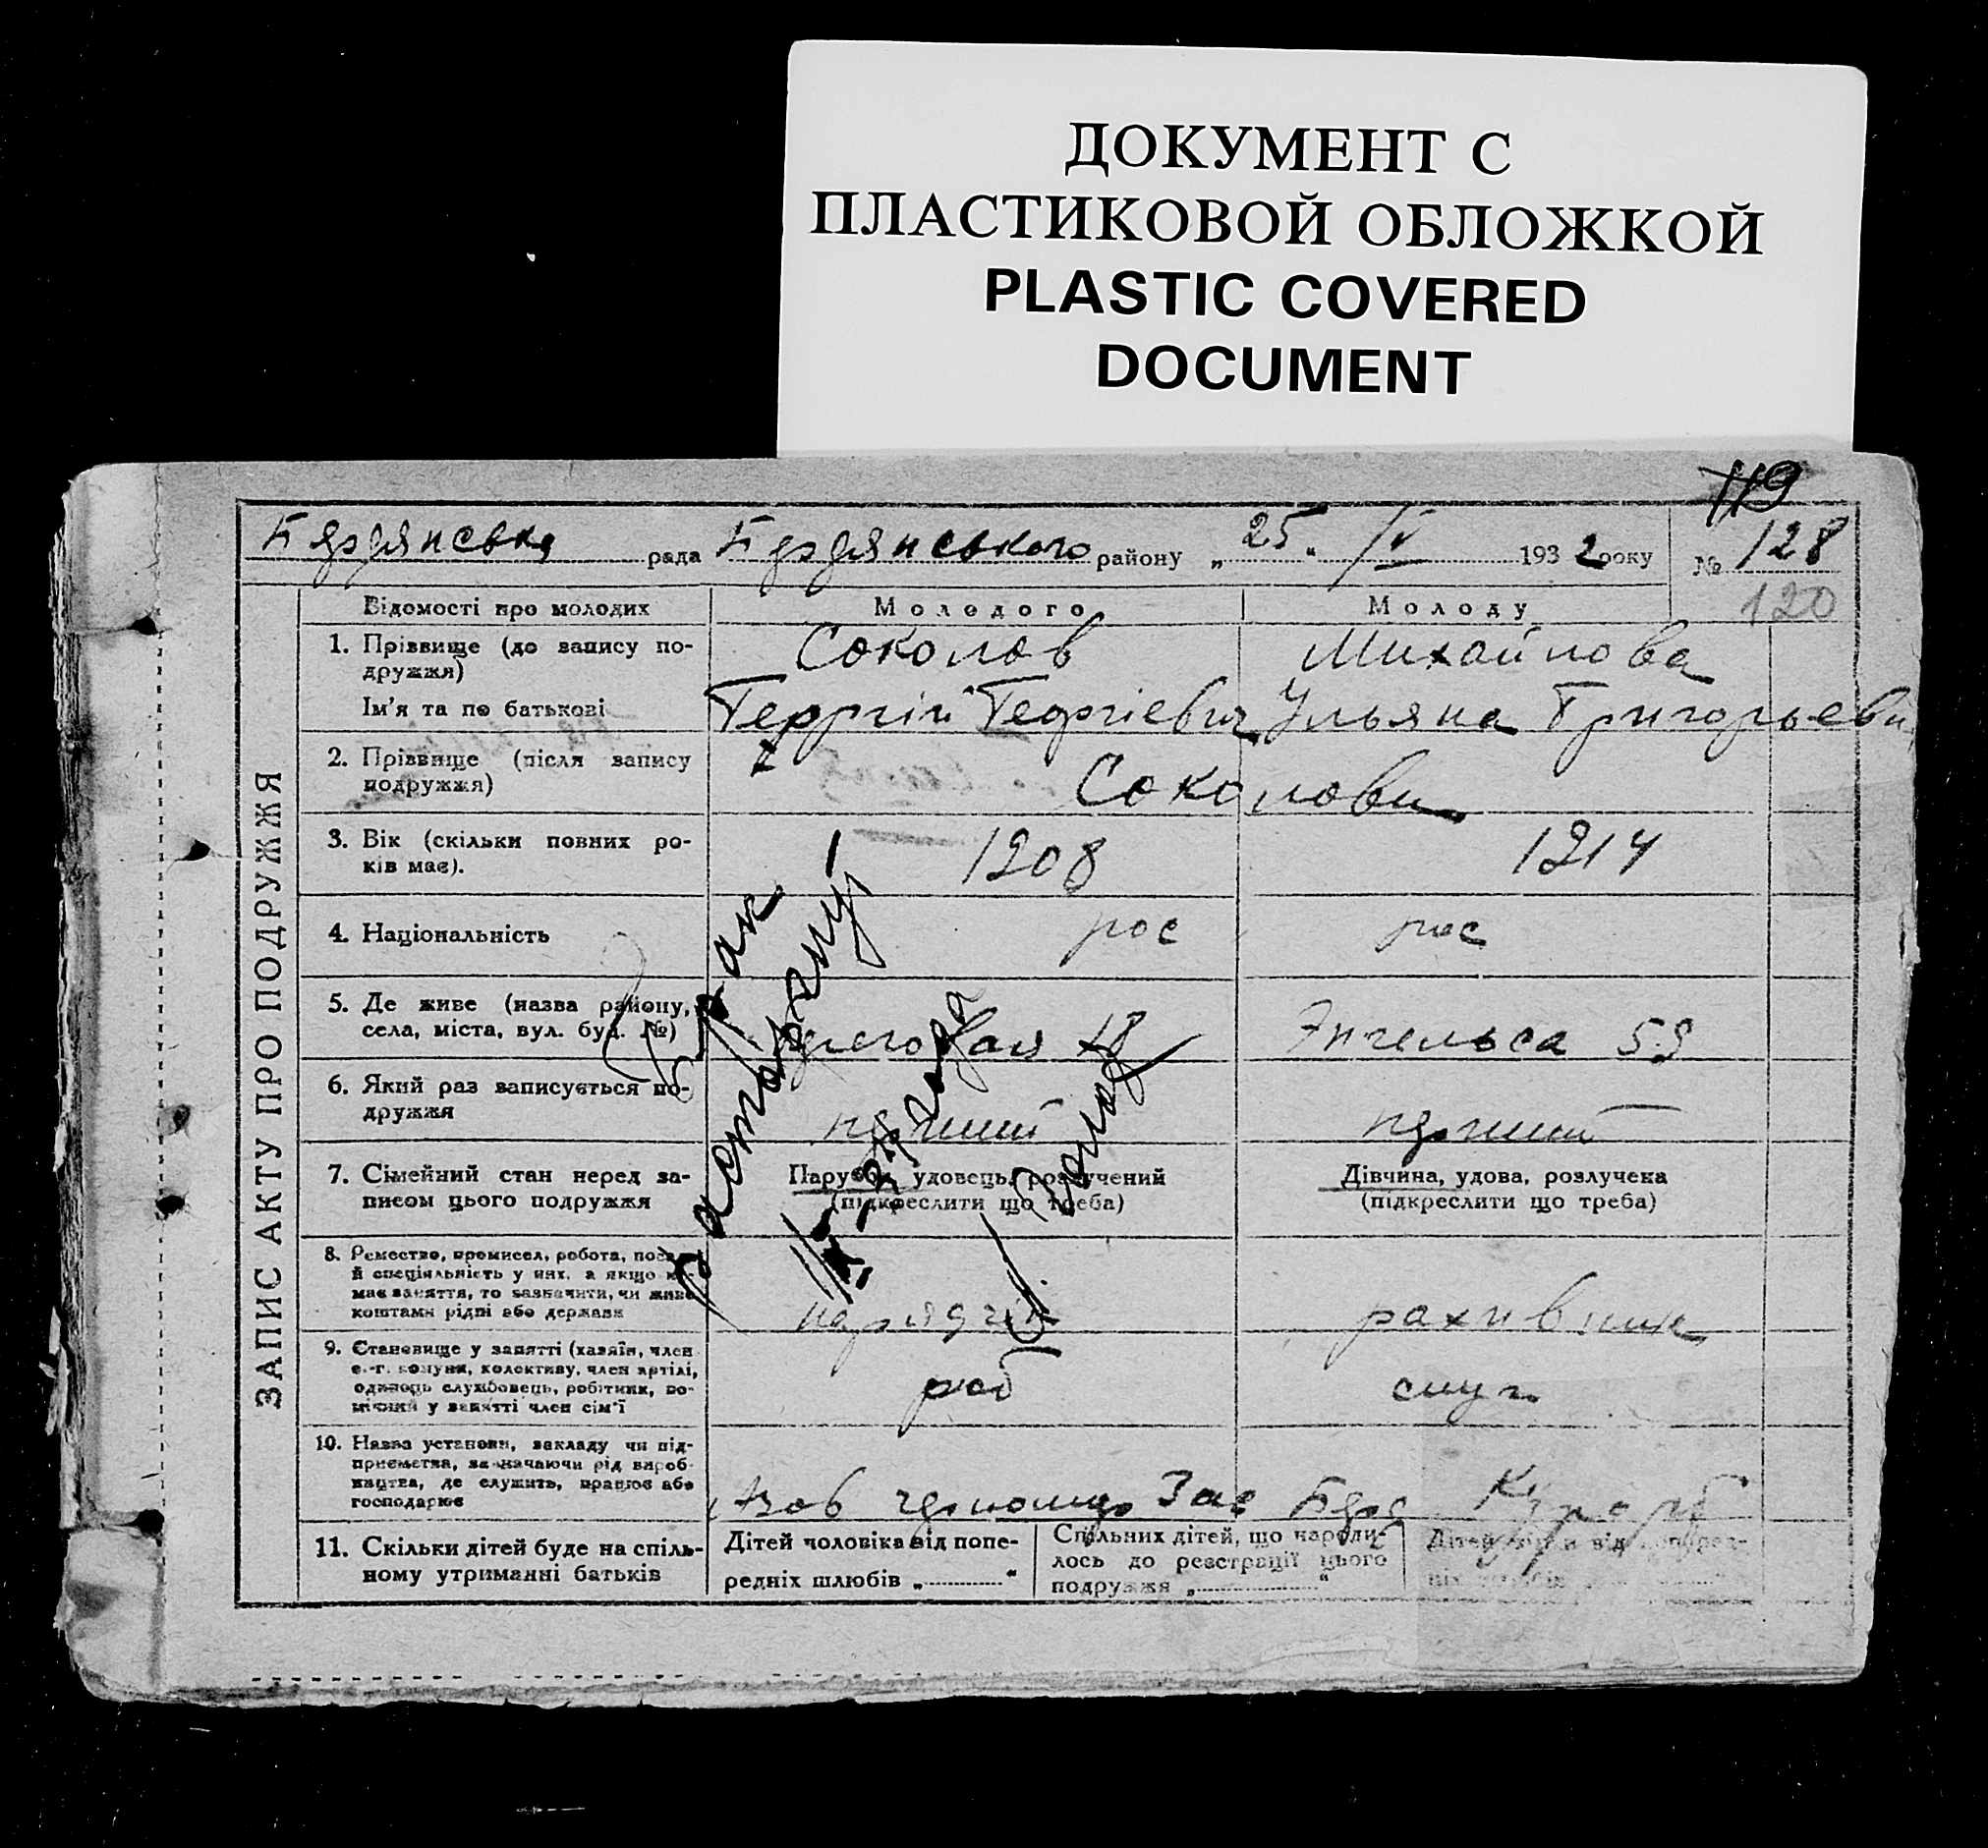 ДОКУМЕНТ С
ПЛАСТИКОВОЙ ОБЛОЖКОЙ
PLASTIC COVERED
DOCUMENT
119
Бердянська рада Бердянського району „25“ IV 1932 року № 128
120
ЗАПИС АКТУ ПРО ПОДРУЖЖЯ
Відомості про молодих Молодого Молоду
1. Прізвище (до запису по- Соколов Михайлова
дружжя)
Ім'я та по батькові Георгій Георгієвич Ульяна Григорьевн
2. Прізвище (після запису
подружжя) Соколови
3. Вік (скільки повних ро- 1908 1914
ків має).
4. Національність рос рос
5. Де живе (назва району,
села, міста, вул. буд. №) 18 Энгельса 59
6. Який раз записується по-
дружжя перший перший
7. Сімейний стан перед за- Парубок, удовець, розлучений Дівчина, удова, розлучена
писом цього подружжя (підкреслити що треба) (підкреслити що треба)
8. Ремество, промисел, робота, посада
й спеціяльність у них, а якщо не
має заняття, то зазначити, чи живе
коштами рідні або держави рахівник
9. Становище у занятті (хазяїн, член
с.-г. комуни, колективу, член артілі,
одинець службовець, робітник, по- роб служ
мічний у занятті член сім'ї
10. Назва установи, закладу чи під-
приємства, зазначаючи рід вироб-
ництва, де служить, працює або
господарює Азов Зав Берд Курорт
11. Скільки дітей буде на спіль-
ному утриманні батьків
Дітей чоловіка від попе-
редніх шлюбів „ “
Спільних дітей, що народи-
лось до реєстрації цього
подружжя „ “
Брак
расторгнут